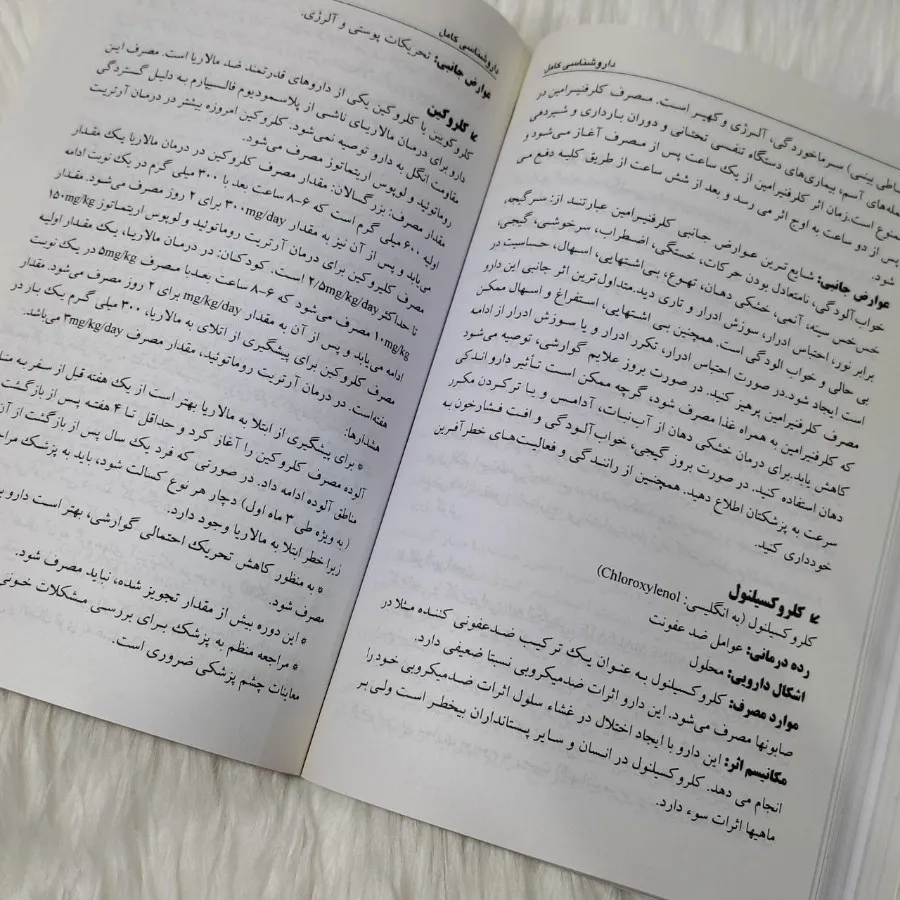 داروشناسی کامل
(...اطی بینی) سرماخوردگی، آلرژی و کهیر است. مصرف کلرفنیرامین در
حمله‌های آسم، بیماری‌های دستگاه تنفسی تحتانی و دوران بارداری و شیردهی
ممنوع است.زمان اثر کلرفنیرامین از یک ساعت پس از مصرف آغاز می‌شود و
پس از دو ساعت به اوج اثر می رسد و بعد از شش ساعت از طریق کلیه دفع می
شود.
عوارض جانبی: شایع ترین عوارض جانبی کلرفنیرامین عبارتند از: سرگیجه،
خواب‌آلودگی، نامتعادل بودن حرکات، خستگی، اضطراب، سرخوشی، گیجی،
خس خس سینه، آنمی، خشکی دهان، تهوع، بی‌اشتهایی، اسهال، حساسیت در
برابر نور، احتباس ادرار، سوزش ادرار و تاری دید.متداول‌ترین اثر جانبی این دارو
بی حالی و خواب آلودگی است. همچنین بی اشتهایی، استفراغ و اسهال ممکن
است ایجاد شود.در صورت احتباس ادرار، تکرر ادرار و یا سوزش ادرار از ادامه
مصرف کلرفنیرامین پرهیز کنید. در صورت بروز علایم گوارشی، توصیه می‌شود
که کلرفنیرامین به همراه غذا مصرف شود، گرچه ممکن است تأثیر دارو اندکی
کاهش یابد.برای درمان خشکی دهان از آب‌نبات، آدامس و یا ترکردن مکرر
دهان استفاده کنید. در صورت بروز گیجی، خواب‌آلودگی و افت فشارخون به
سرعت به پزشکتان اطلاع دهید. همچنین از رانندگی و فعالیت‌های خطرآفرین
خودداری کنید.
کلروکسیلنول
کلروکسیلنول (به انگلیسی: Chloroxylenol)
رده درمانی: عوامل ضد عفونت
اشکال دارویی: محلول
موارد مصرف: کلروکسیلنول به عنوان یک ترکیب ضدعفونی کننده مثلا در
صابونها مصرف می‌شود. این دارو اثرات ضدمیکروبی نسبتا ضعیفی دارد.
مکانیسم اثر: این دارو با ایجاد اختلال در غشاء سلول اثرات ضدمیکروبی خود را
انجام می دهد. کلروکسیلنول در انسان و سایر پستانداران بیخطر است ولی بر
ماهیها اثرات سوء دارد.
داروشناسی کامل
عوارض جانبی: تحریکات پوستی و آلرژی.
کلروکین
کلروکویین یا کلروکین یکی از داروهای قدرتمند ضد مالاریا است. مصرف این
دارو برای درمان مالاریای ناشی از پلاسمودیوم فالسیپارم به دلیل گستردگی
مقاومت انگل به دارو توصیه نمی‌شود. کلروکین امروزه بیشتر در درمان آرتریت
روماتوئید و لوپوس اریتماتوز مصرف می‌شود.
مقدار مصرف: بزرگسالان: مقدار مصرف کلروکین در درمان مالاریا یک مقدار
اولیه ۶۰۰ میلی گرم است که ۶-۸ ساعت بعد با ۳۰۰ میلی گرم در یک نوبت ادامه
می‌یابد و پس از آن نیز به مقدار ۳۰۰mg/day برای ۲ روز مصرف می‌شود. مقدار
مصرف کلروکین برای درمان آرتریت روماتوئید و لوپوس اریتماتوز ۱۵۰mg
تا حداکثر ۲/۵mg/kg/day است. کودکان: در درمان مالاریا، یک مقدار اولیه
۱۰mg/kg مصرف می‌شود که ۶-۸ ساعت بعدبا مصرف ۵mg/kg در یک نوبت
ادامه می‌یابد و پس از آن به مقدار mg/kg/day برای ۲ روز مصرف می‌شود. مقدار
مصرف کلروکین برای پیشگیری از ابتلای به مالاریا، ۳۰۰ میلی گرم یک بار در
هفته‌است. در درمان آرتریت روماتوئید، مقدار مصرف ۳mg/kg/day می‌باشد.
هشدارها:
* برای پیشگیری از ابتلا به مالاریا بهتر است از یک هفته قبل از سفر به
آلوده مصرف کلروکین را آغاز کرد و حداقل تا ۴ هفته پس از بازگشت
مناطق آلوده ادامه داد. در صورتی که فرد یک سال پس از بازگشت از آن
(به ویژه طی ۳ ماه اول) دچار هر نوع کسالت شود، باید به پزشک
زیرا خطر ابتلا به مالاریا وجود دارد.
* به منظور کاهش تحریک احتمالی گوارشی، بهتر است دارو
مصرف شود.
* این دوره بیش از مقدار تجویز شده، نباید مصرف شود.
* مراجعه منظم به پزشک برای بررسی مشکلات خونی
معاینات چشم پزشکی ضروری است.